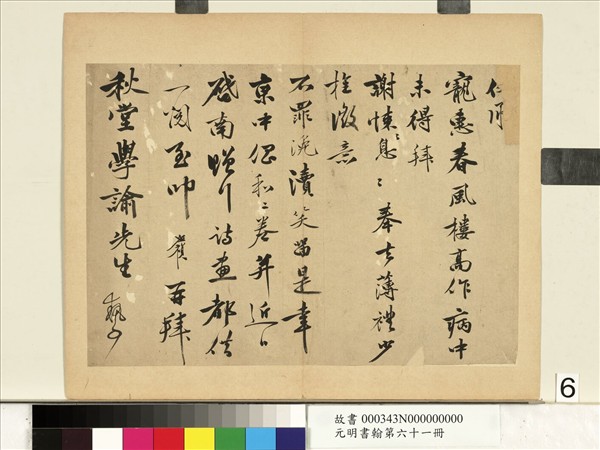 寵惠春風樓高作病中
未得拜
謝悚悚息息奉去薄禮少
旌微意
不罪浼瀆笑留是幸
東中倡和二卷并近日
啟南贈行詩畫都供
一覽至叩 寵再拜
秋堂學諭先生
6
故書 000343N000000000
元明書翰第六十一冊